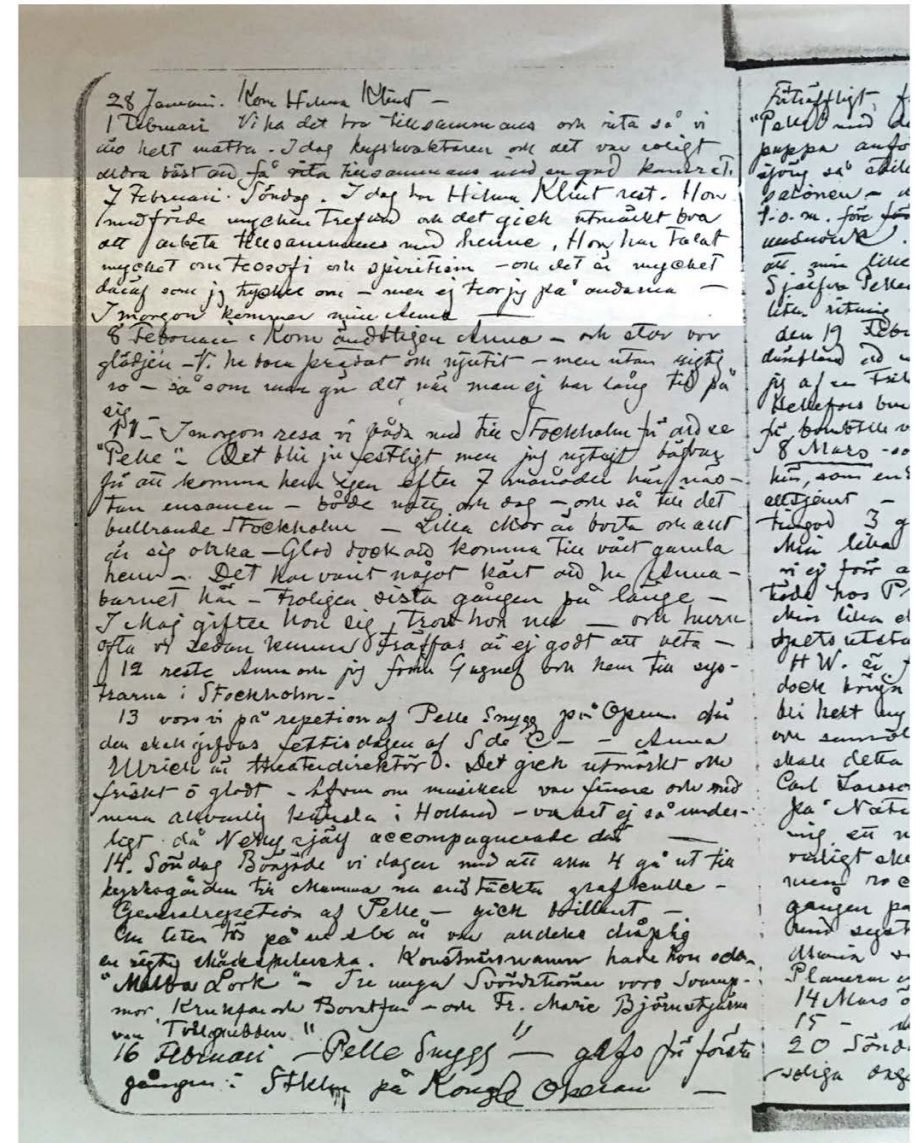 28 Januari. Kom Hilma Klint –
1 Februari Vi ha det bra tillsammans och rita så vi
äro helt matta – Idag kyrkvaktaren och det var roligt
aldra bäst att få rita tillsammans med en god kamrat.
7 Februari. Söndag. Idag har Hilma Klint rest. Hon
medförde mycken trefnad och det gick utmärkt bra
att arbeta tillsammans med henne. Hon har talat
mycket om teosofi och spiritism – och det är mycket
däraf som jg tycker om – men ej tror jg på andarna –
I morgon kommer min Anna –
8 Februari. Kom ändtligen Anna – och stor var
glädjen – Vi ha bara pratat och njutit – men utan rigtig
ro – så som man gör det när man ej har lång tid på
sig
11 – I morgon resa vi båda ned till Stockholm för att se
"Pelle" – Det blir ju festligt men jag rigtigt
för att komma hem igen efter 7 månader här näs-
tan ensamen – både natt och dag – och så till det
bullrande Stockholm – Lilla Mor är borta och allt
är sig olika – Glad dock att komma till vårt gamla
hem –. Det har varit något kärt att ha Anna-
barnet här – Troligen sista gången på länge –
I Maj gifter hon sig, tror hon nu – och huru
ofta vi sedan kunna träffas är ej godt att veta –
12 reste Anna och jg från Gagnef och hem till sys-
trarna i Stockholm –
13 voro vi på repetion af Pelle Snygg på Operan då
den skall gifvas fettisdagen af S de C – – Anna
Ulrich är theaterdirektör. Det gick utmärkt och
friskt o gladt – äfven om musiken var finare och med
mera allvarlig känsla i Holland – var det ej så under-
ligt då Nelly själf accompagnerade det –
14. Söndag Började vi dagen med att alla 4 gå ut till
kyrkogården till Mamma nu snötäckta grafkulle –
Generalrepetion af Pelle – gick brillant –
En liten tös på är var alldeles dråplig
en rigtig skådespelerska. Konstnärsnamn hade hon också
"Malba Lork" – Tre unga Svärdströmer voro Svamp-
mor, Krukfar och Borstfar – och Fr. Marie Björnstjerna
var Trollgubben "
16 Februari – Pelle Snygg " – gafs för första
gången i Sthlm på Kongl Operan –
Förträffligt,
"Pelle" med
pappa
så
salongen –
t.o.m. före
att min lilla
Själfva Pelle
liten ritning
den 19 Febr
jg af en
för
8 Mars – så
som
3
Min lilla
vi ej förr
hos
Min lilla
H W. är
dock
bli helt
och
skall detta
Carl Larsson
på
ning
men
gången på
med
Maria
Planerar
14 Mars
15 –
20 Sönd
soliga